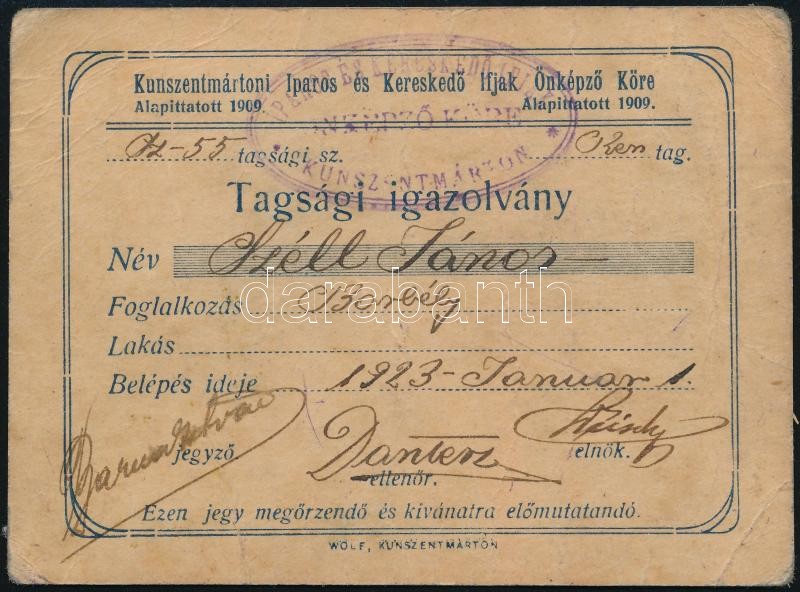 Kunszentmártoni Iparos és Kereskedő Ifjak Önképző Köre
Alapittatott 1909. Alapittatott 1909.
IPAROS ÉS KERESKEDŐ IFJAK
ÖNKÉPZŐ KÖRE
* KUNSZENTMÁRTON *
55 tagsági sz. Ren tag.
Tagsági igazolvány
Név Széll János
Foglalkozás Borbély
darabanth
Lakás
Belépés ideje 1923 - Januar 1.
István
jegyző. ellenőr. elnök.
Ezen jegy megőrzendő és kivánatra előmutatandó.
WOLF, KUNSZENTMÁRTON